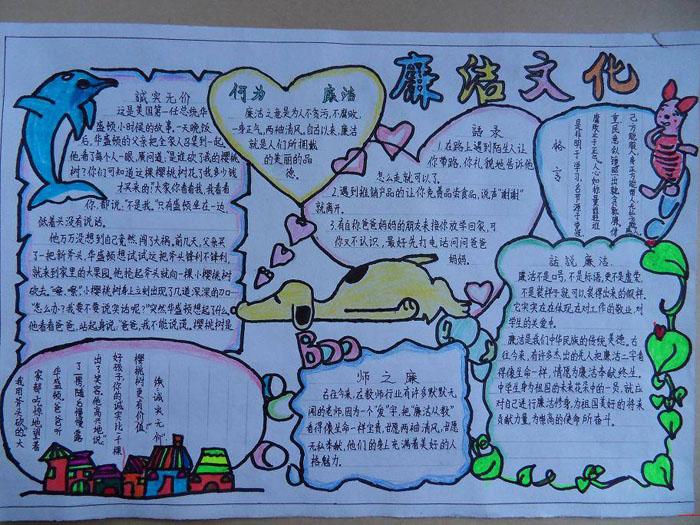 廉洁文化
诚实无价
这是美国第一任总统华
盛顿小时候的故事。一天晚饭
后,华盛顿的父亲把全家人召集到一起。
他看了每个人一眼,厉问道:"是谁砍了我的樱桃
树?你们可知道这棵樱桃树花了我多少钱
才买来的?"大家你看看我,我看看
你,都说:"不是我。"只有盛顿坐在一边,
低着头没有说话。
他万万没想到自己竟然闯了大祸。前几天,父亲买
了一把新斧头,华盛顿想试试这把斧头锋利不锋利,
就来到家里的大果园。他抡起斧头就向一棵小樱桃树
砍去。"嚓、嚓"小樱桃树身上立刻出现了几道深深的刀口
"怎么办?我要不要说实话呢?"突然华盛顿想起了什么,
他看着爸爸,站起身说:"爸爸,我不能说谎。樱桃树是
我用斧头砍的。"大
家都吃惊地望着
华盛顿。爸爸听
了一把搂着他慢慢露
出了笑容。他高兴地说
好孩子你的诚实比千棵
樱桃树更有价值!"
诚实无价
何为 廉洁
廉洁之意是为人不贪污,不腐败,
一身正气,两袖清风,自古以来,廉洁
就是人们所拥戴
的美丽的品
德.
语录
1.在路上遇到陌生人让
你带路,你礼貌地告诉他
怎么走就可以了.
2.遇到推销产品的让你免费品尝食品,说声"谢谢"
就离开.
3.有自称爸爸妈妈的朋友来接你放学回家,可
你又不认识,最好先打电话问问爸爸
妈妈.
格言
话说廉洁
廉洁不是口号,不是标语,更不是虚荣,
不是装样子就可以装得出来的假样,
它实实在在体现在对工作的敬业,对
学生的关爱中.
廉洁是我们中华民族的传统美德.古
往今来,有许多杰出的先人把廉洁二字看
得像生命一样,情愿为廉洁奉献终生.
中学生身为祖国的未来花朵中的一员,就应
对自己进行廉洁修身,为祖国美好的将来
贡献力量,为崇高的使命所奋斗.
师之廉
古往今来,在教师行业有许多默默无
闻的老师,因为一个"廉"字,把"廉洁人教"
看得像生命一样宝贵,甘愿两袖清风,甘愿
无私奉献,他们的身上充满着美好的人
格魅力.